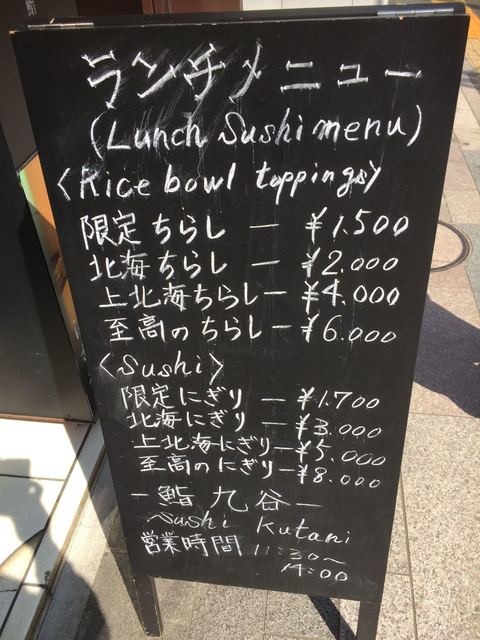 ランチメニュー
(Lunch Sushi menu)
〈Rice bowl toppings〉
限定ちらし ー ¥1.500
北海ちらし ー ¥2.000
上北海ちらしー ¥4.000
至高のちらしー ¥6.000
〈Sushi〉
限定にぎり ー ¥1.700
北海にぎり ー ¥3.000
上北海にぎりー¥5.000
至高のにぎりー¥8.000
ー鮨 九谷ー
Sushi Kutani
営業時間 11:30〜
14:00